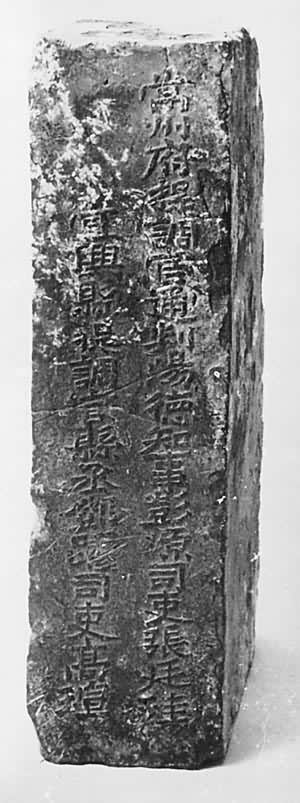 常州府提調官通判湯德知事彭源司吏張廷珪
宜興縣提調官縣丞司吏高